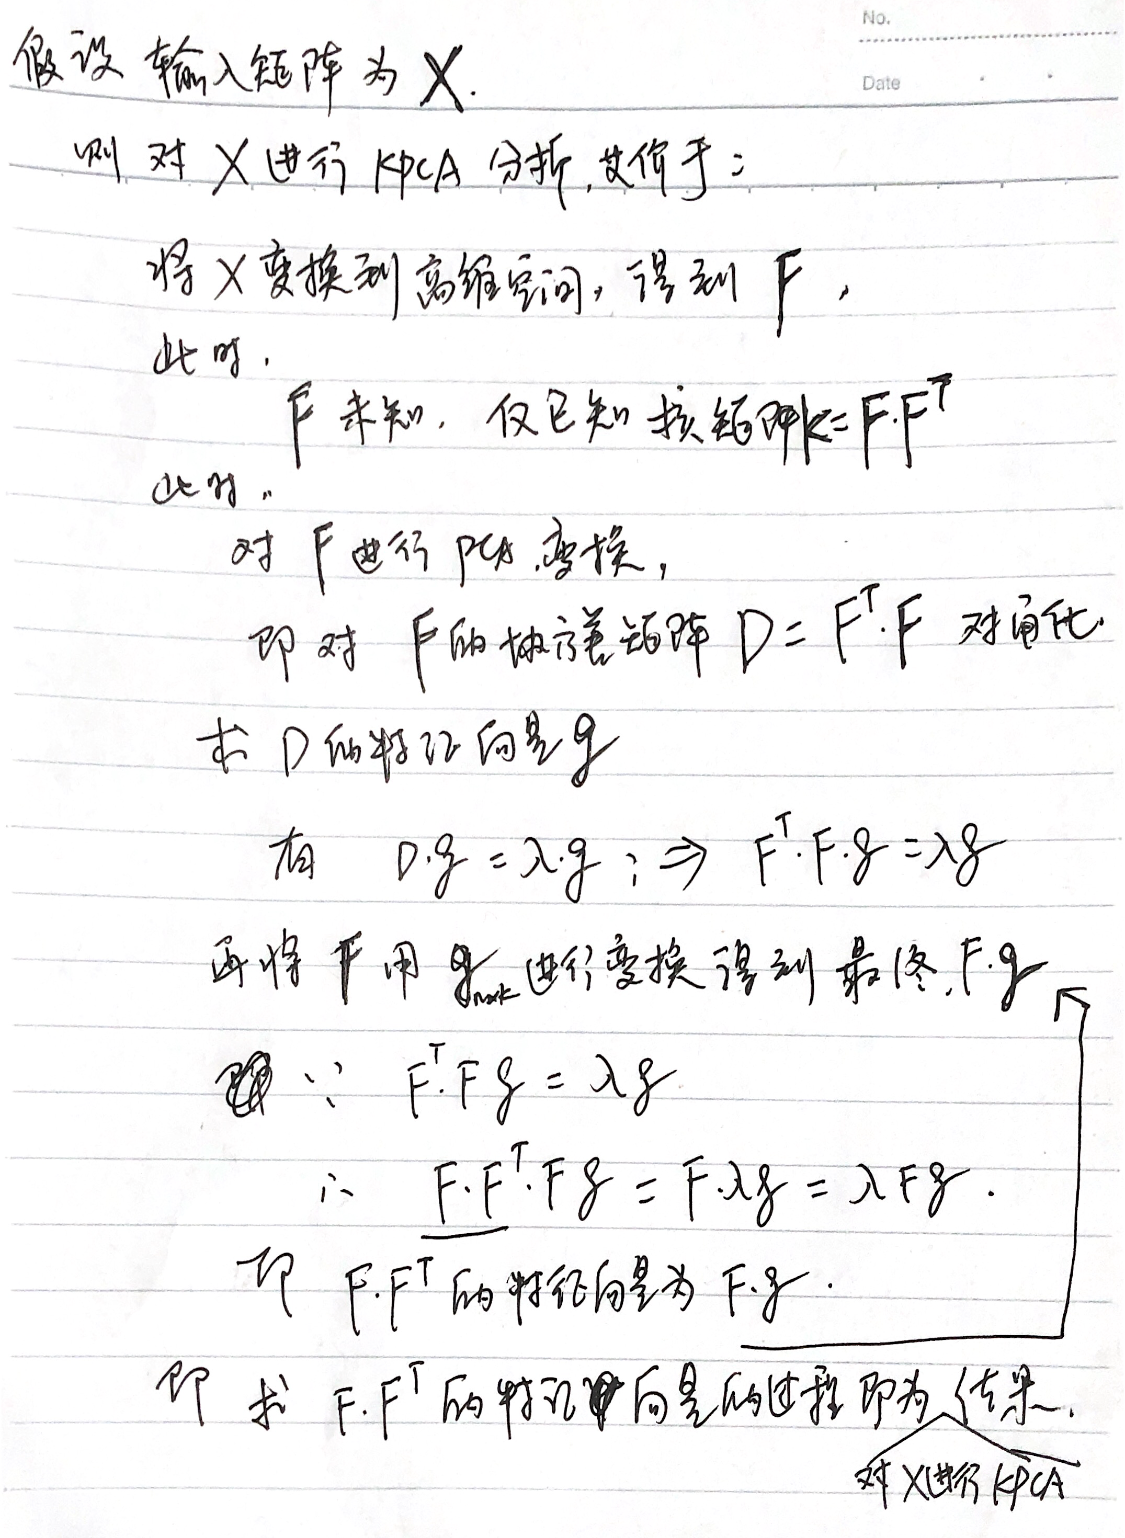 No.
Date
假设 输入矩阵为 X.
则 对 X 进行 KPCA 分析, 等价于:
将 X 变换到高维空间, 得到 F,
此时,
F 未知, 仅已知 核矩阵K=F·Fᵀ
此时,
对 F 进行 PCA 变换,
即对 F的协方差矩阵 D = Fᵀ·F 对角化.
求 D 的特征向量 g
有 D·g = λ·g ; ⇒ Fᵀ·F·g = λg
再将 F 用 g 进行变换得到最终, F·g
∵ Fᵀ·F g = λg
∴ F·Fᵀ·F g = F·λg = λ F g .
即 F·Fᵀ 的特征向量为 F·g .
即 求 F·Fᵀ 的特征向量的过程即为 结果.
对 X进行 KPCA